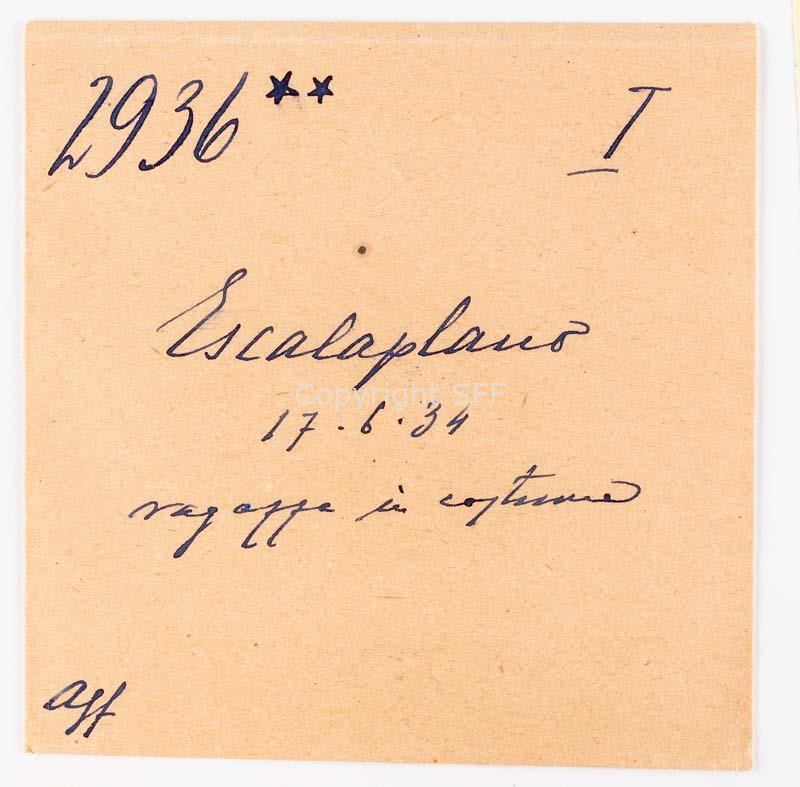 2936** I
Escalaplano
Copyright SFF
17.6.34
ragazza in costume
aff